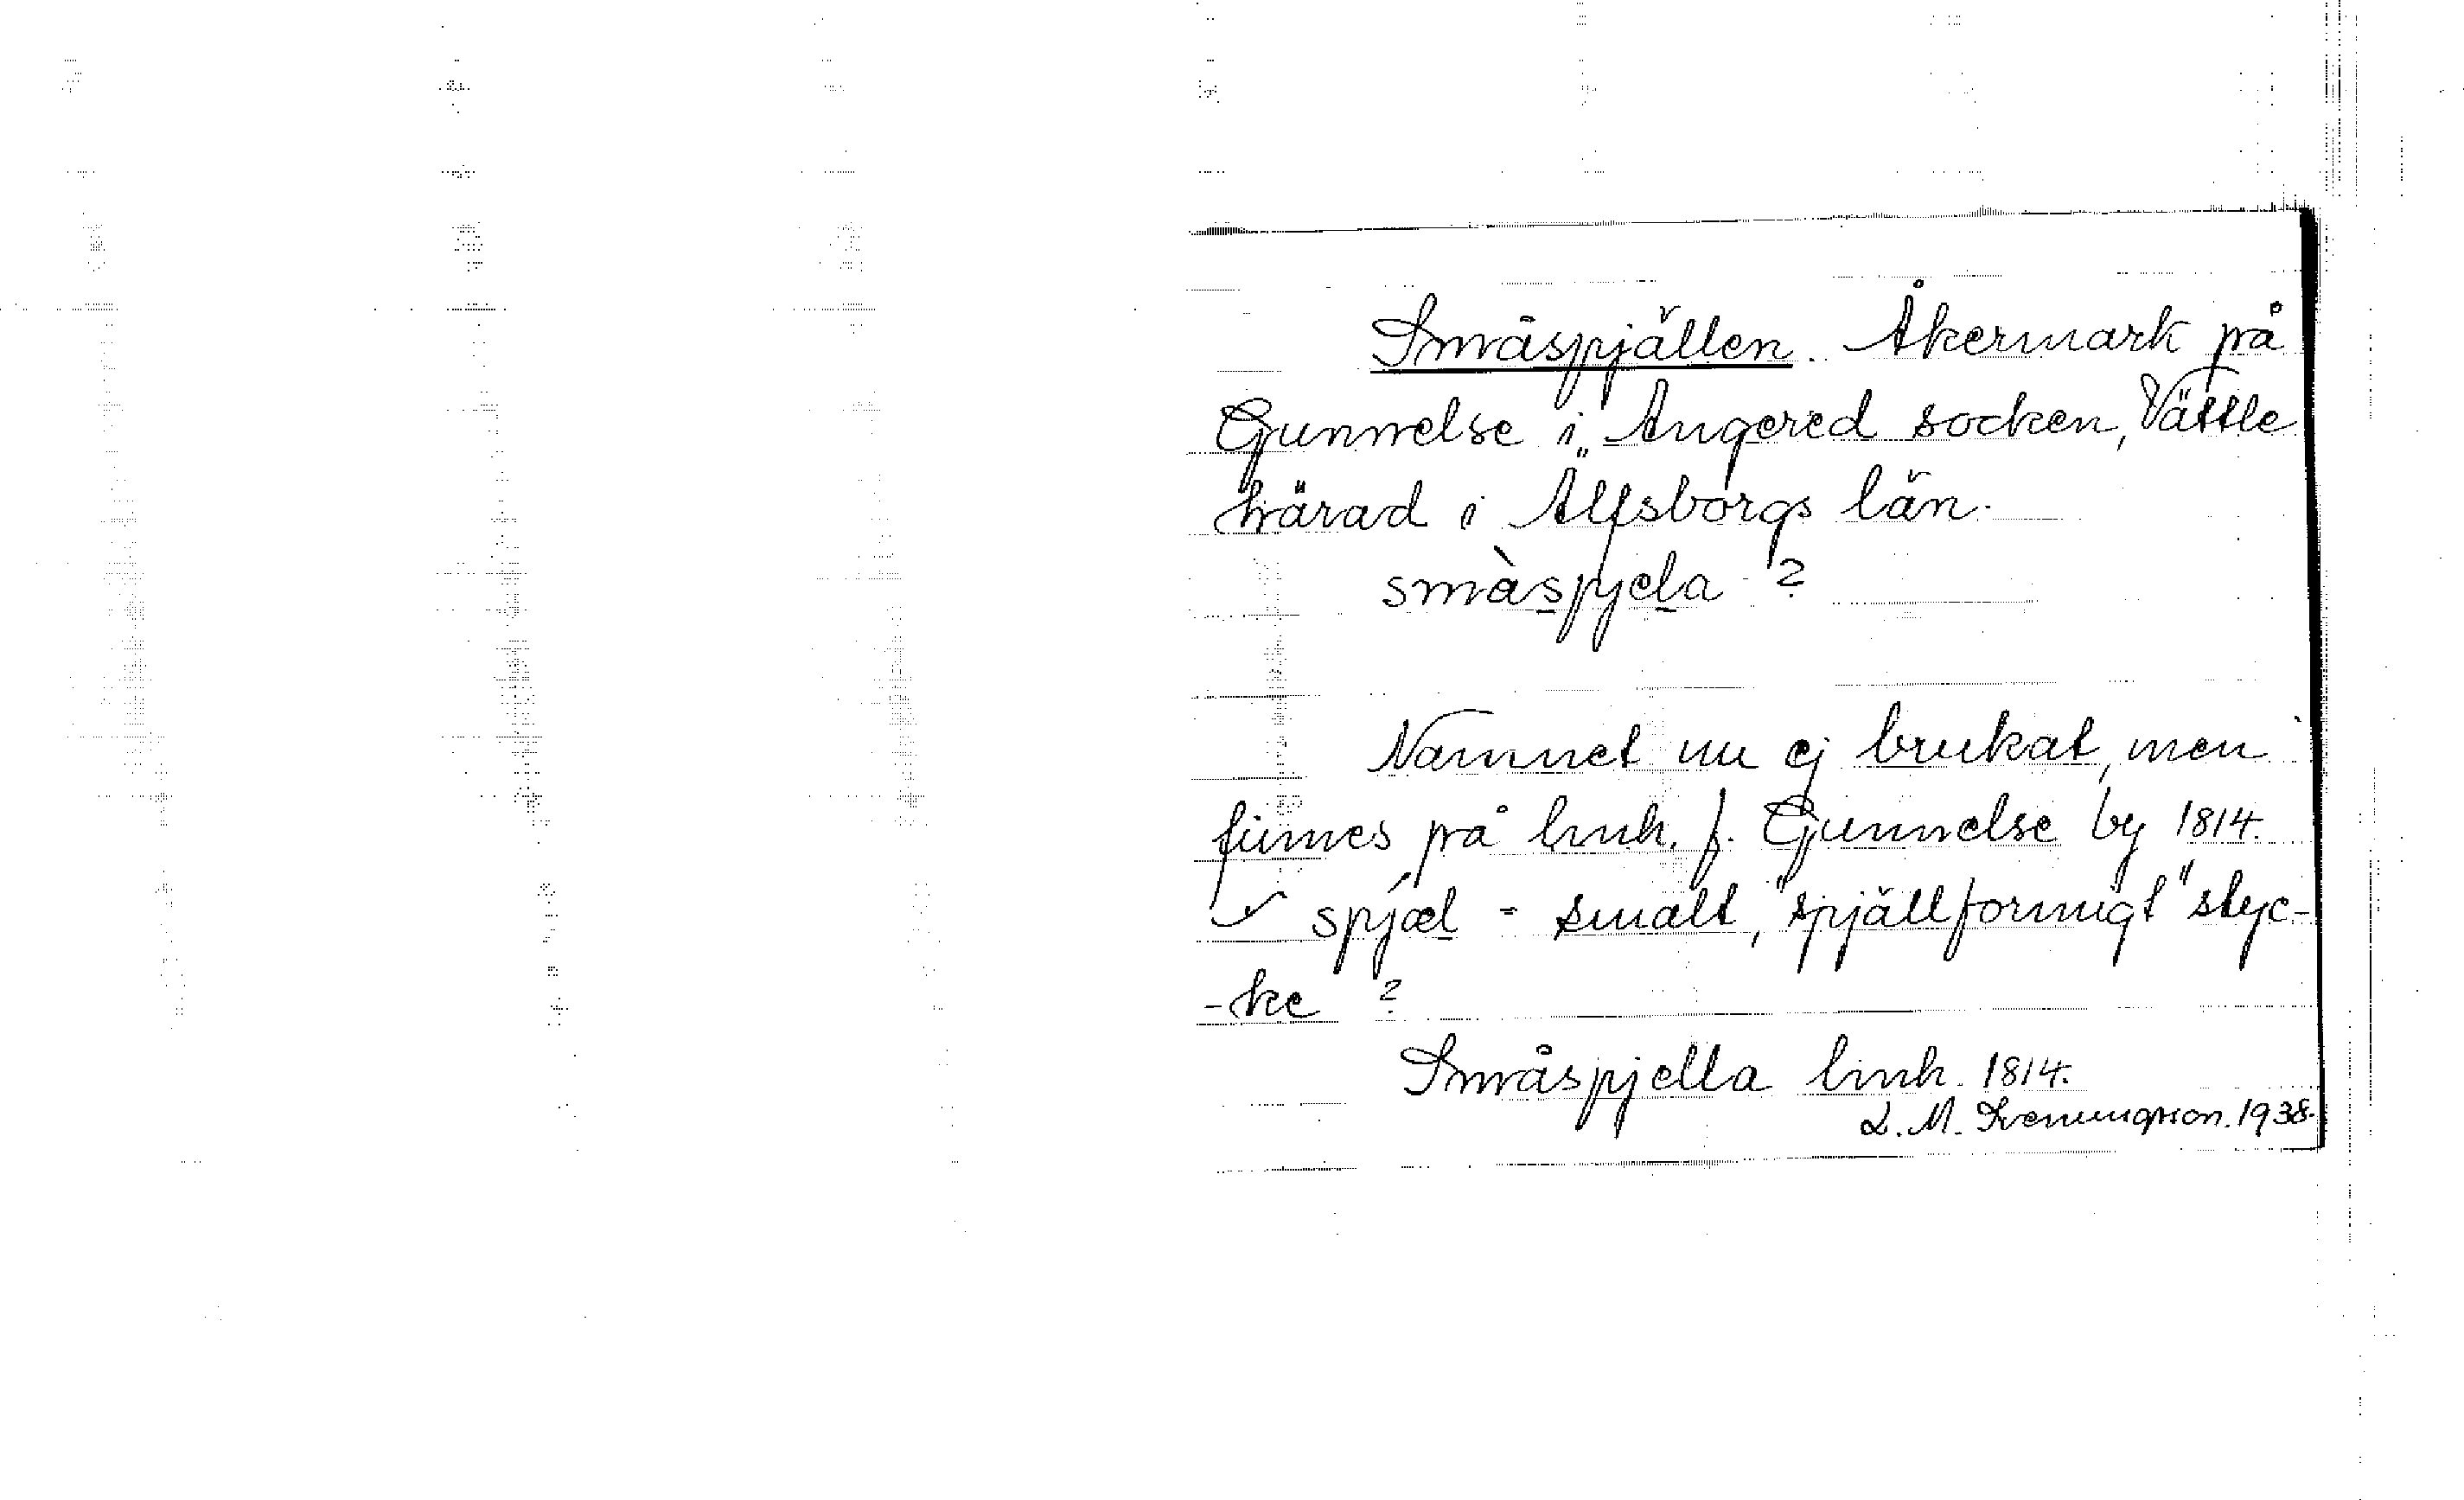 Småspjällen. Åkermark på
Gunnelse i Angered socken, Vättle
härad i Älfsborgs län.
smàspjela ?
Namnet nu ej brukat, men
finnes på lmh. f. Gunnelse by 1814.
spjæl - smalt, "spjällformigt" styc-
-ke ?
Småspjella lmh. 1814.
L. M. Svenungsson. 1938.